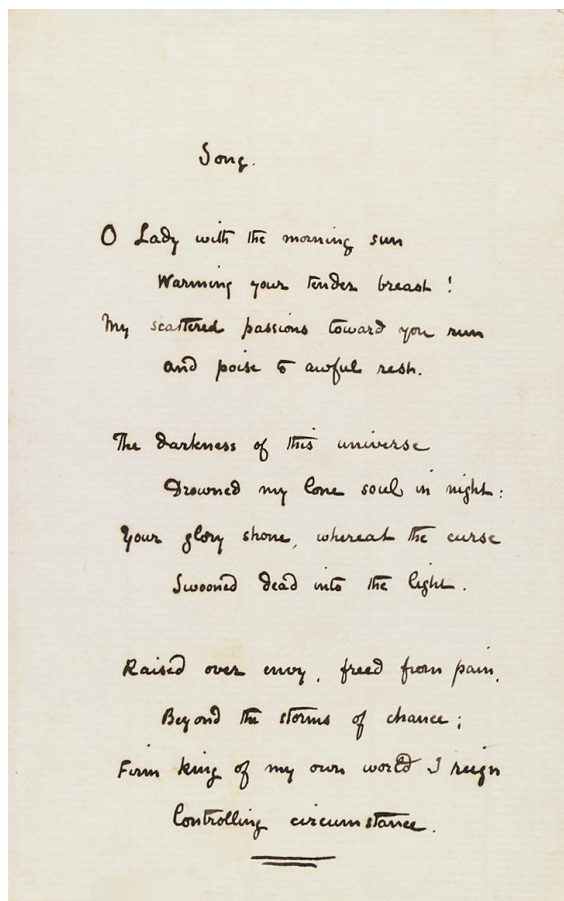 Song.
O Lady with the morning sun
Warming your tender breast!
My scattered passions toward you run
And poise to awful rest.
The darkness of this universe
Drowned my lone soul in night:
Your glory shone, whereat the curse
Swooned dead into the light.
Raised over envy, freed from pain,
Beyond the storms of chance;
Firm king of my own world I reign
Controlling circumstance.